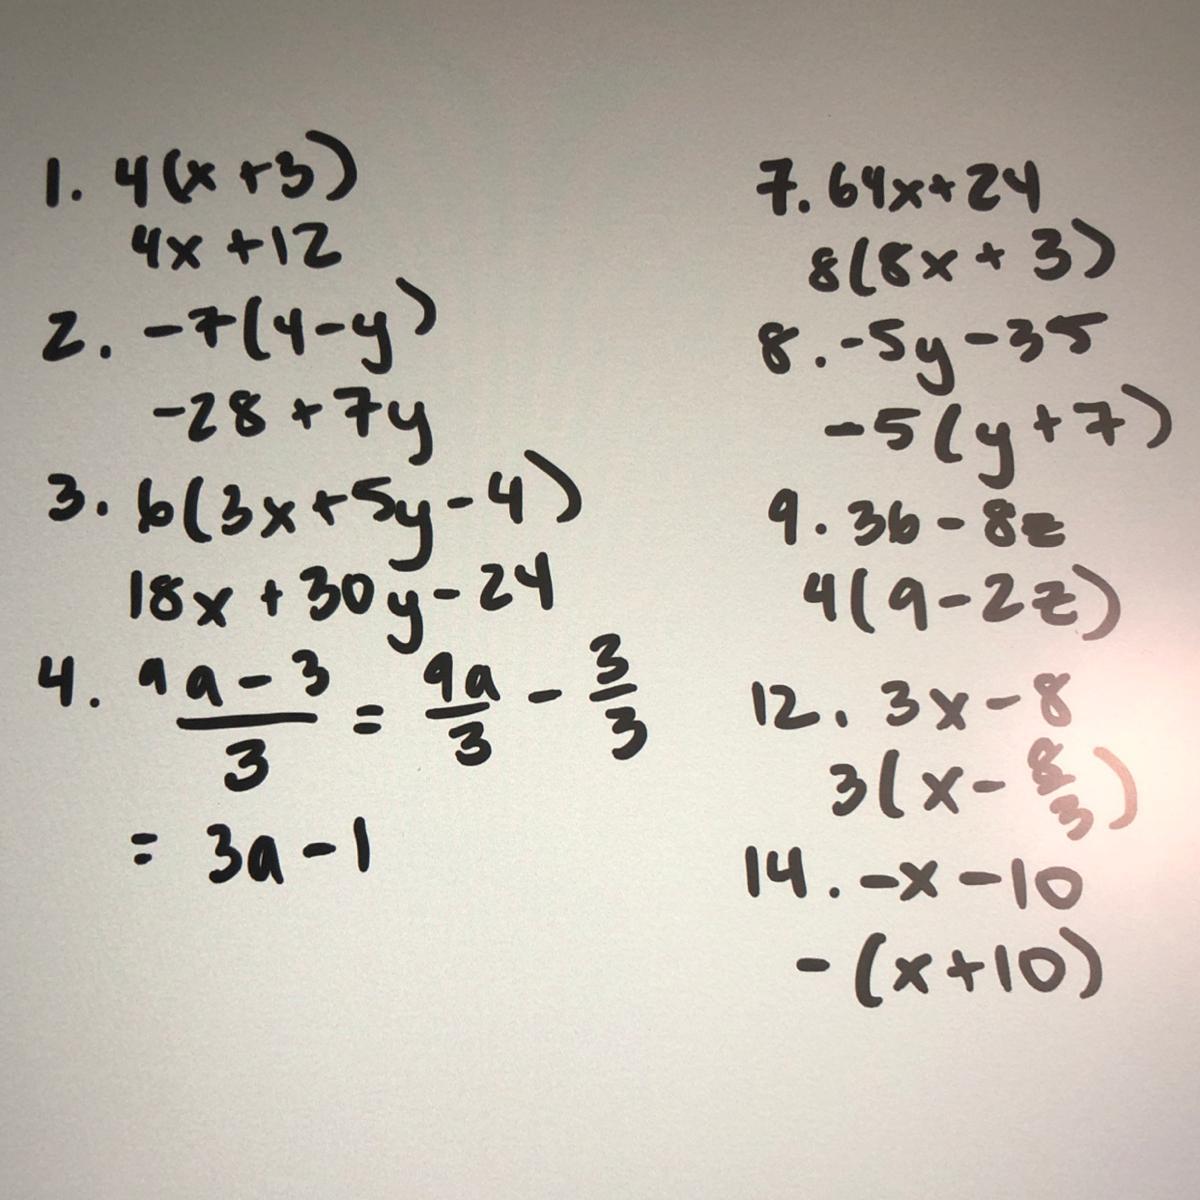 1. 4(x+3)
4x+12
2. -7(4-y)
-28+7y
3. 6(3x+5y-4)
18x+30y-24
4. 9a-3/3 = 9a/3 - 3/3
= 3a-1
7. 64x+24
8(8x+3)
8. -5y-35
-5(y+7)
9. 36-8z
4(9-2z)
12. 3x-8
3(x-8/3)
14. -x-10
-(x+10)